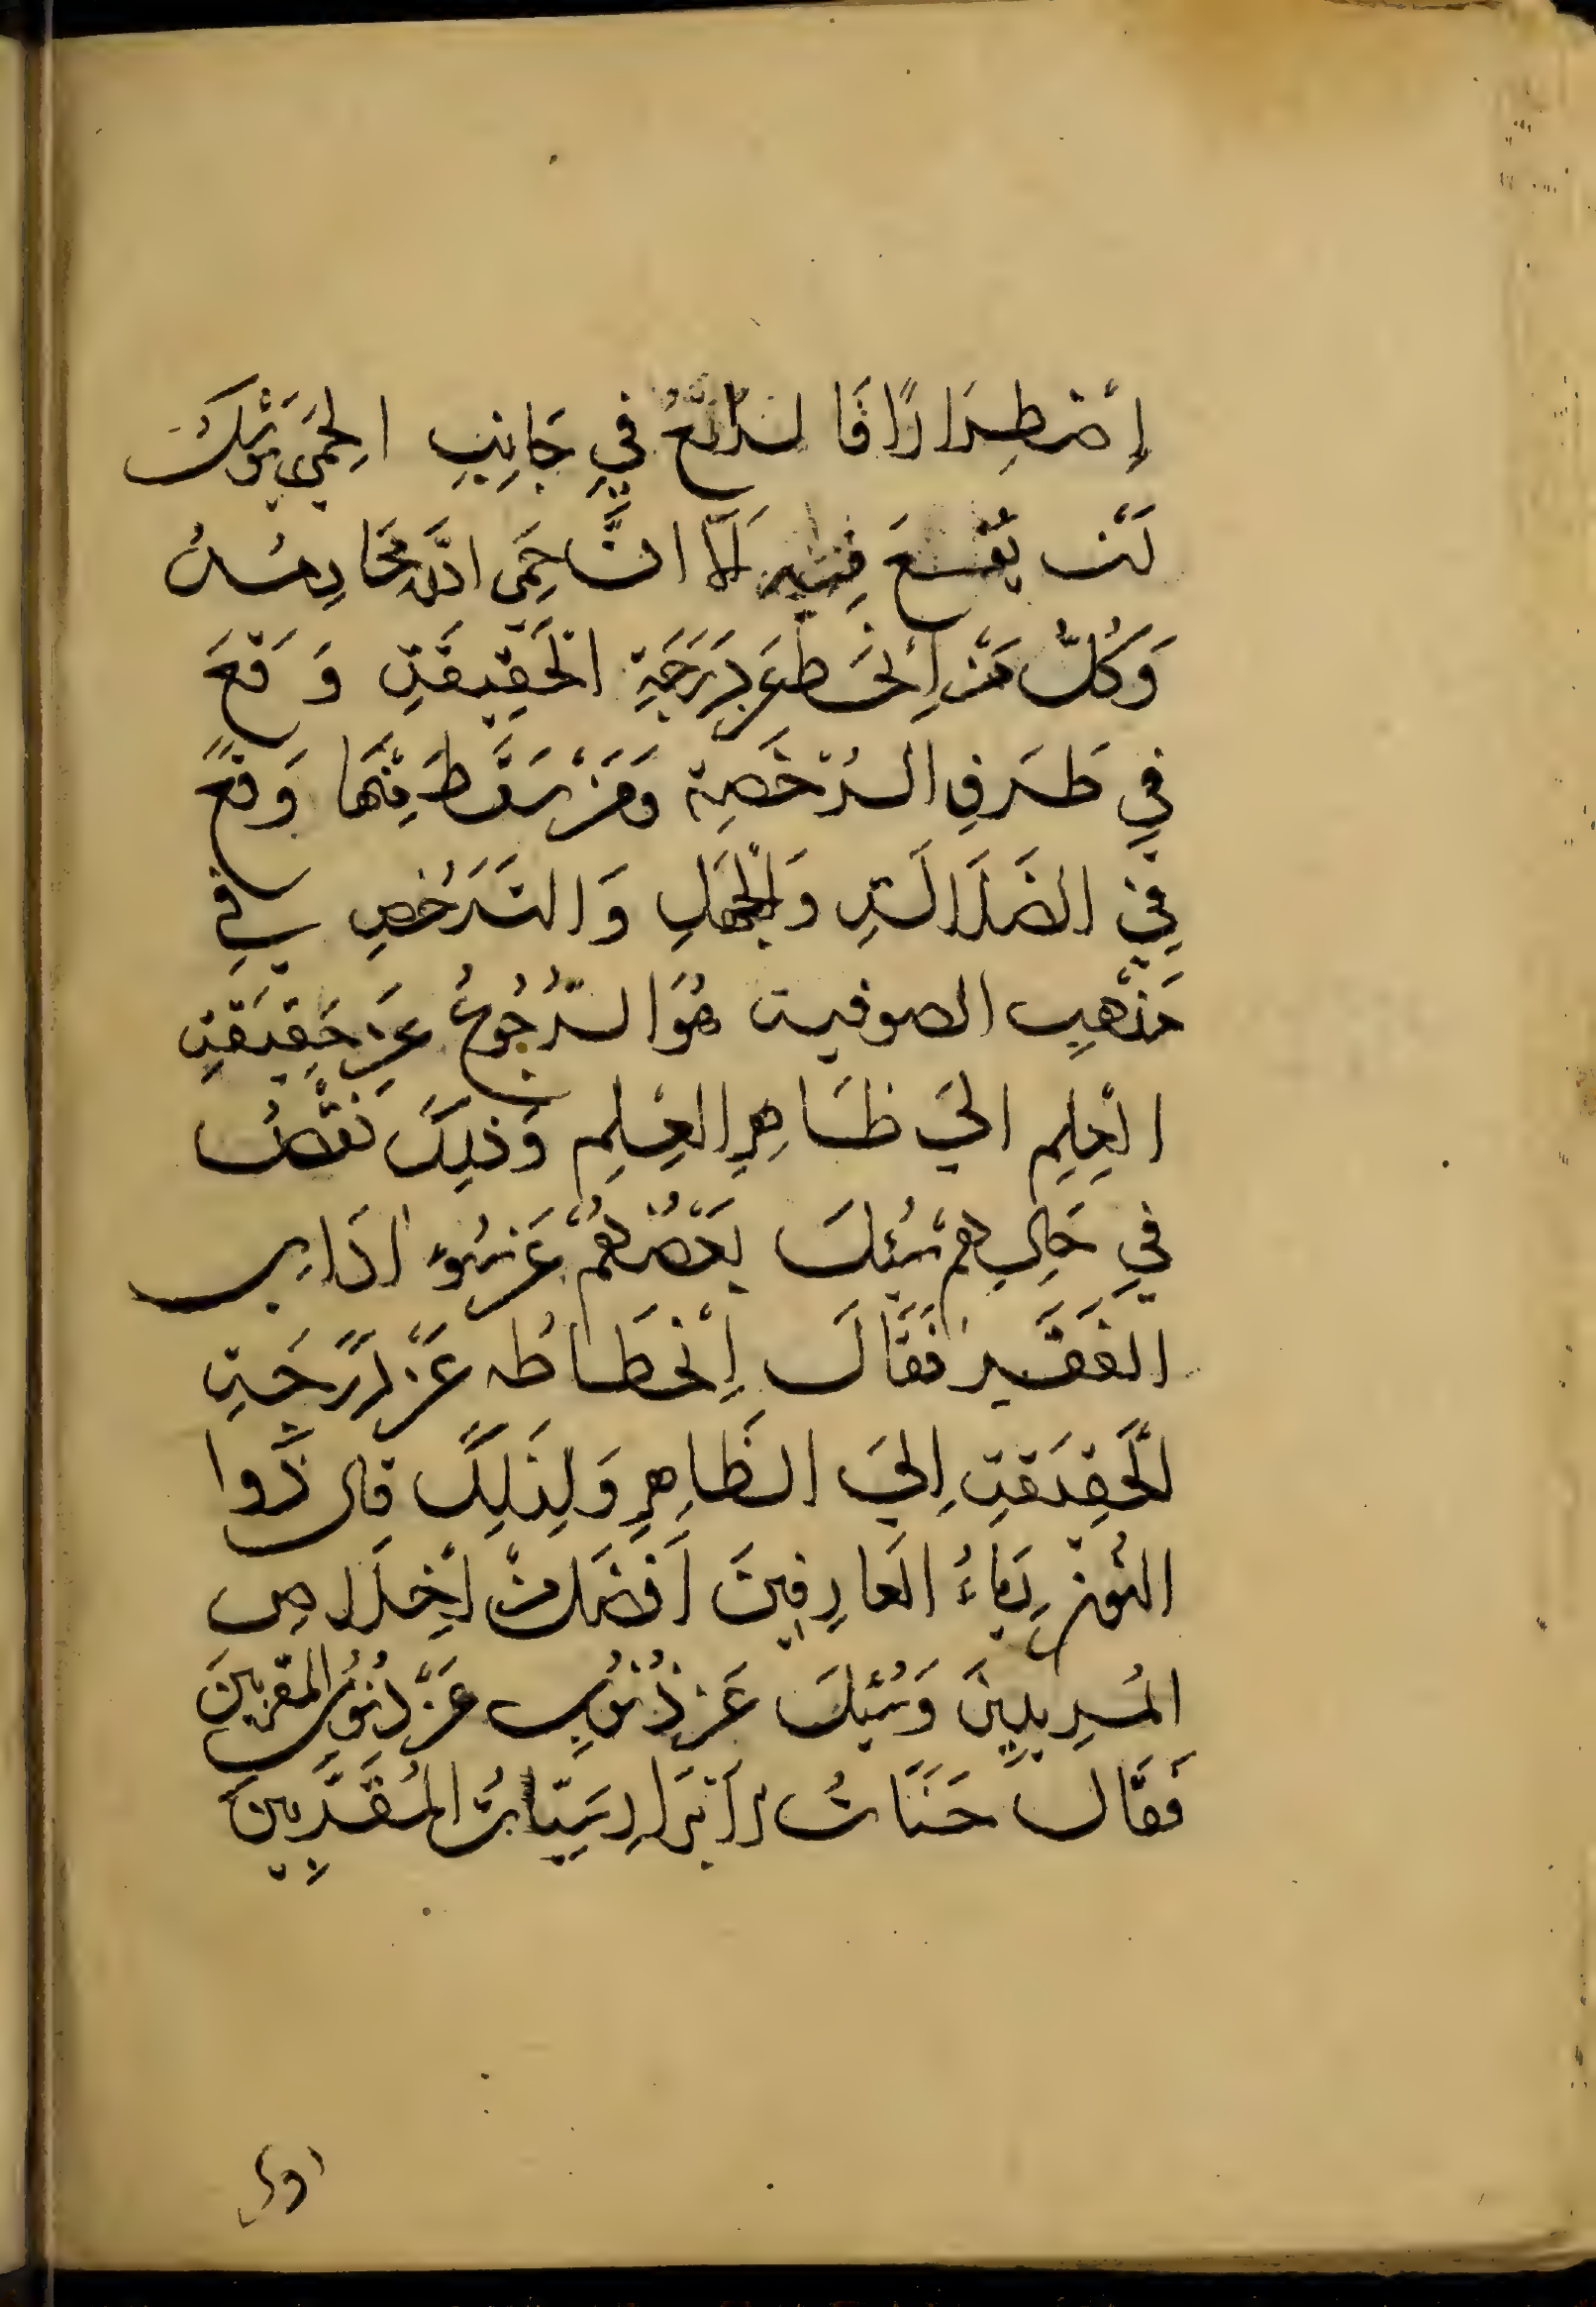 إضْطِرَارًا فَالرَّاتِعُ فِي جَانِبِ الحِمَي يُوشِكُ
أَنْ يَقَعَ فِيهِ أَلَا اِنَّ حِمَي اللّهِ مَحَارِمُهُ
وَكُلُّ مَنْ إِنْحَطَّ عَنْ دَرَجَةِ الْحَقِيقَةِ وَقَعَ
فِي طَرَفِ الرُّخْصَةِ وَمَنْ سَقَطَ مِنْهَا وَقَعَ
فِي الضَلَالَةِ وَالْجَهْلِ وَالتَرَخُّصِ فِي
مَذْهَبِ الصوفية هُوَ الرُّجُوعُ عَنْ حَقِيقَةِ
الْعِلِم الَي ظَاهِرِ الْعِلِم وَذَلِكَ نَقْصٌ
فِي حَالِهِمْ سُئِلَ بَعْضُهُمْ عَنْ سُوءِ ادَابِ
الفَقِيرِ فَقَالَ إِنْحِطَاطُه عَنْ دَرَجَةِ
الْحَقِيقَةِ اِلَيَ الظَاهِرِ وَلِذَلِكَ قال ذُوا
النُون رِيَاءُ العَارِفِينَ اَفْضَلُ مِنْ اِخْلَاصِ
المُرِيدِينَ وَسُئِلَ عَنْ ذُنُوبِ عَنْ ذُنُوبِ المقربِينَ
فَقَالَ حَسَنَاتُ الاَبْرَارِ سَيِّئَاتُ المُقَرَّبِينَ